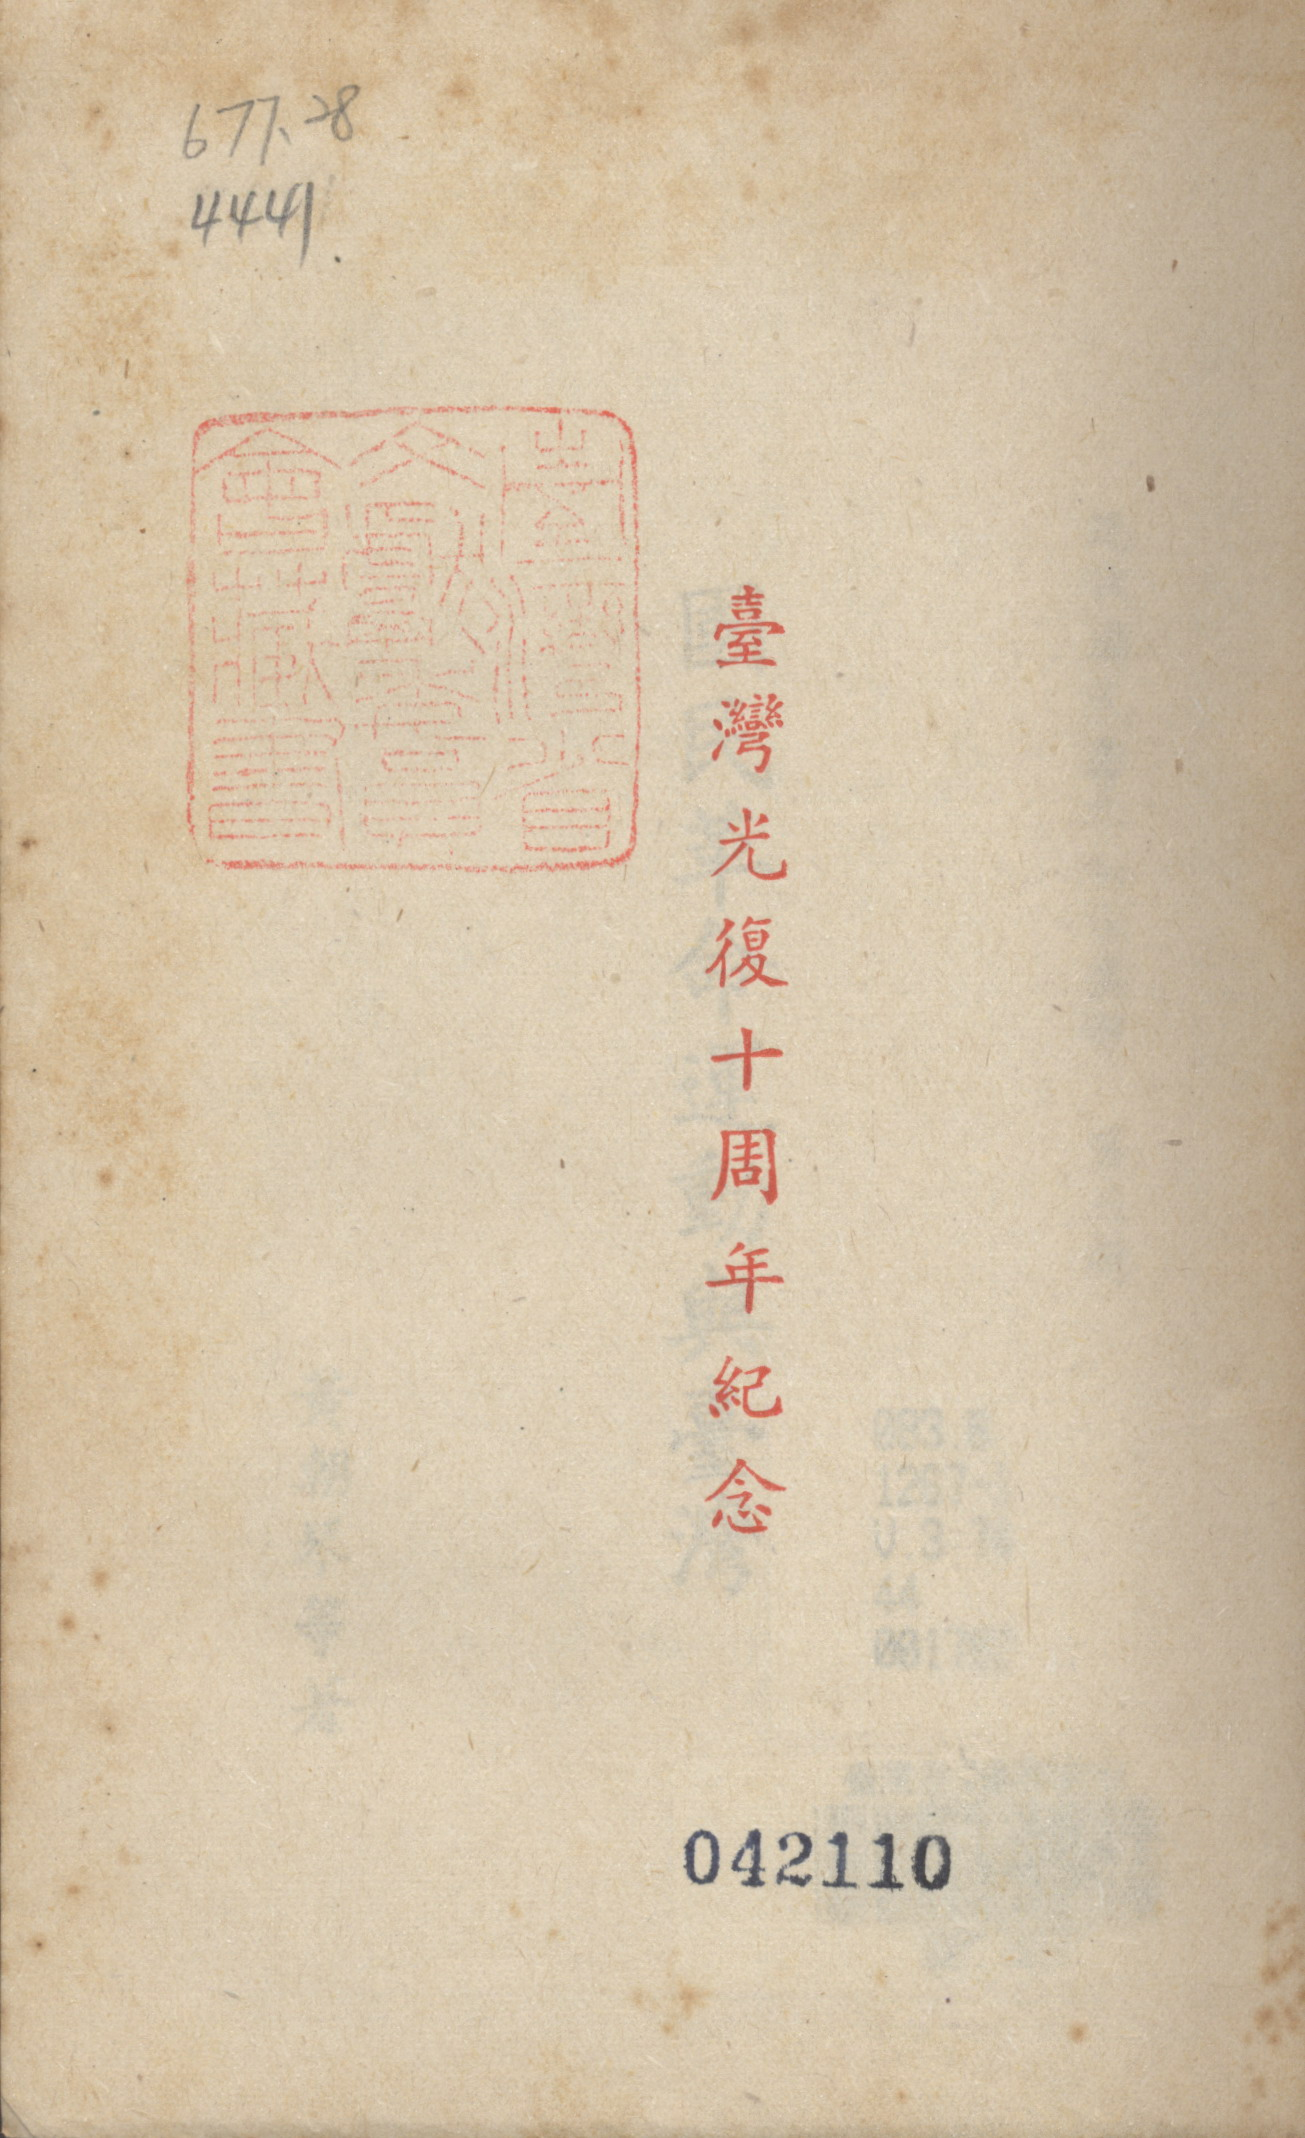 677.28
4441
臺灣省
文獻委員
會藏書
臺灣光復十周年紀念
042110